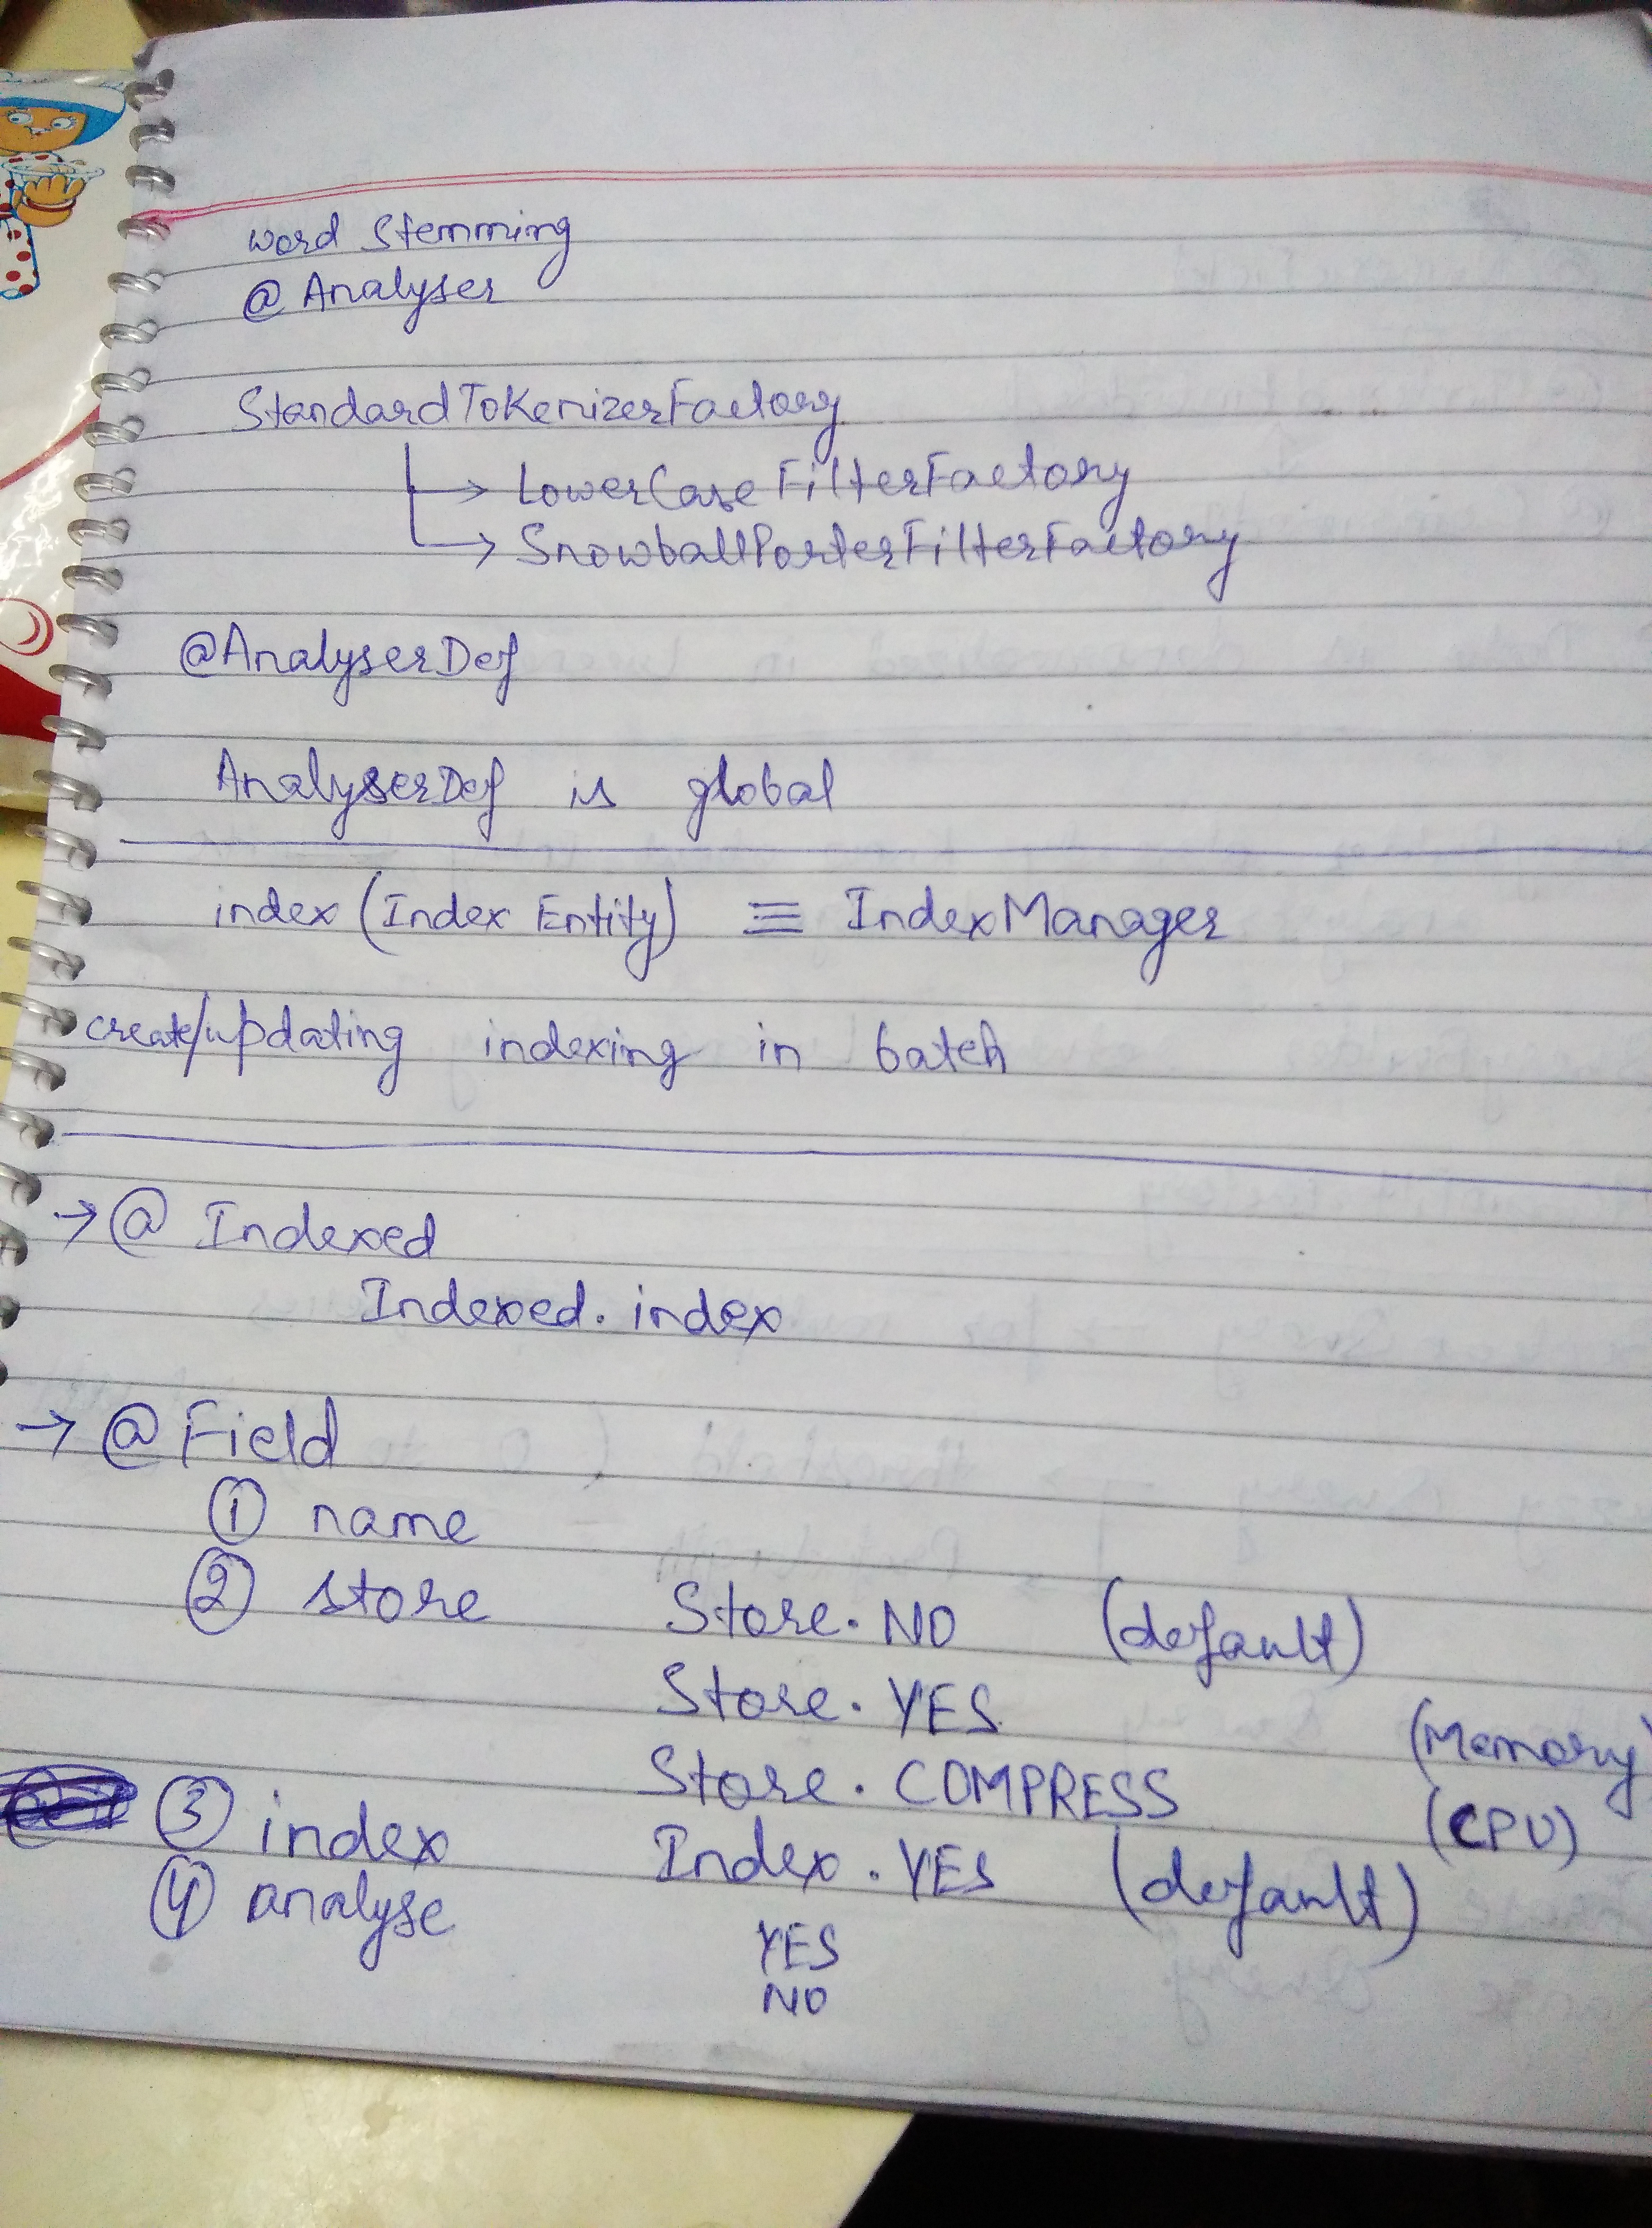 word Stemming
@ Analyser
StandardTokenizerFactory
→ LowerCaseFilterFactory
→ SnowballPorterFilterFactory
@AnalyserDef
AnalyserDef is global
index (Index Entity) ≡ IndexManager
create/updating indexing in batch
→ @ Indexed
Indexed. index
→ @ Field
① name
② store Store. NO (default)
Store. YES (Memory)
Store. COMPRESS (CPU)
③ index Index. YES (default)
④ analyse YES
NO